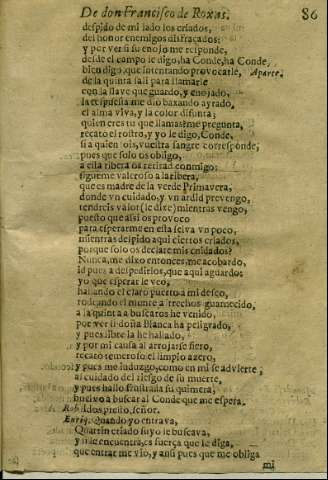 De don Francisco de Roxas. 86
despido de mi lado los criados,
del honor enemigos disfraçados:
y por ver si su enojo me responde,
desde el campo le digo, ha Conde, ha Conde,
bien digo, que intentando provocarle, Aparte.
de la quinta salí para llamarle
con la llave que guardo, y enojado,
la respuesta me dió baxando ayrado,
el alma viva, y la color difunta;
quien eres tu que llamas? me pregunta,
recato el rostro, y yo le digo, Conde,
si a quien sois, vuestra sangre corresponde,
pues que solo os obligo,
a esta ribera os retirad conmigo:
sigueme valeroso a la ribera,
que es madre de la verde Primavera,
donde vn cuidado, y vn ardid prevengo,
tendreis valor (le dixe) mientras vengo,
puesto que assi os provoco
para esperarme en esta selva vn poco,
mientras despido aqui ciertos criados,
porque solo os declare mis cuidados?
Nunca, me dixo entonces, me acobardo,
id pues a despedirlos, que aqui aguardo:
yo que esperar le veo,
hallando el claro puerto a mi deseo,
rodeando el monte a trechos guarnecido,
a la quinta a buscaros he venido,
por ver si doña Blanca ha peligrado,
y pues libre la he hallado,
y por mi causa al arrojarse fiero,
recató temeroso el limpio azero,
y pues me induzgo, como en mi se advierte,
al cuidado del riesgo de su muerte,
y pues hallo frustrada su quimera,
buelvo a buscar al Conde que me espera.
Rob. Idos presto, señor.
Enriq. Quando yo entrava,
Quatrin criado suyo le buscava,
y si le encuentra, es fuerça que le diga,
que entrar me vio, y ansi pues que me obliga
mi